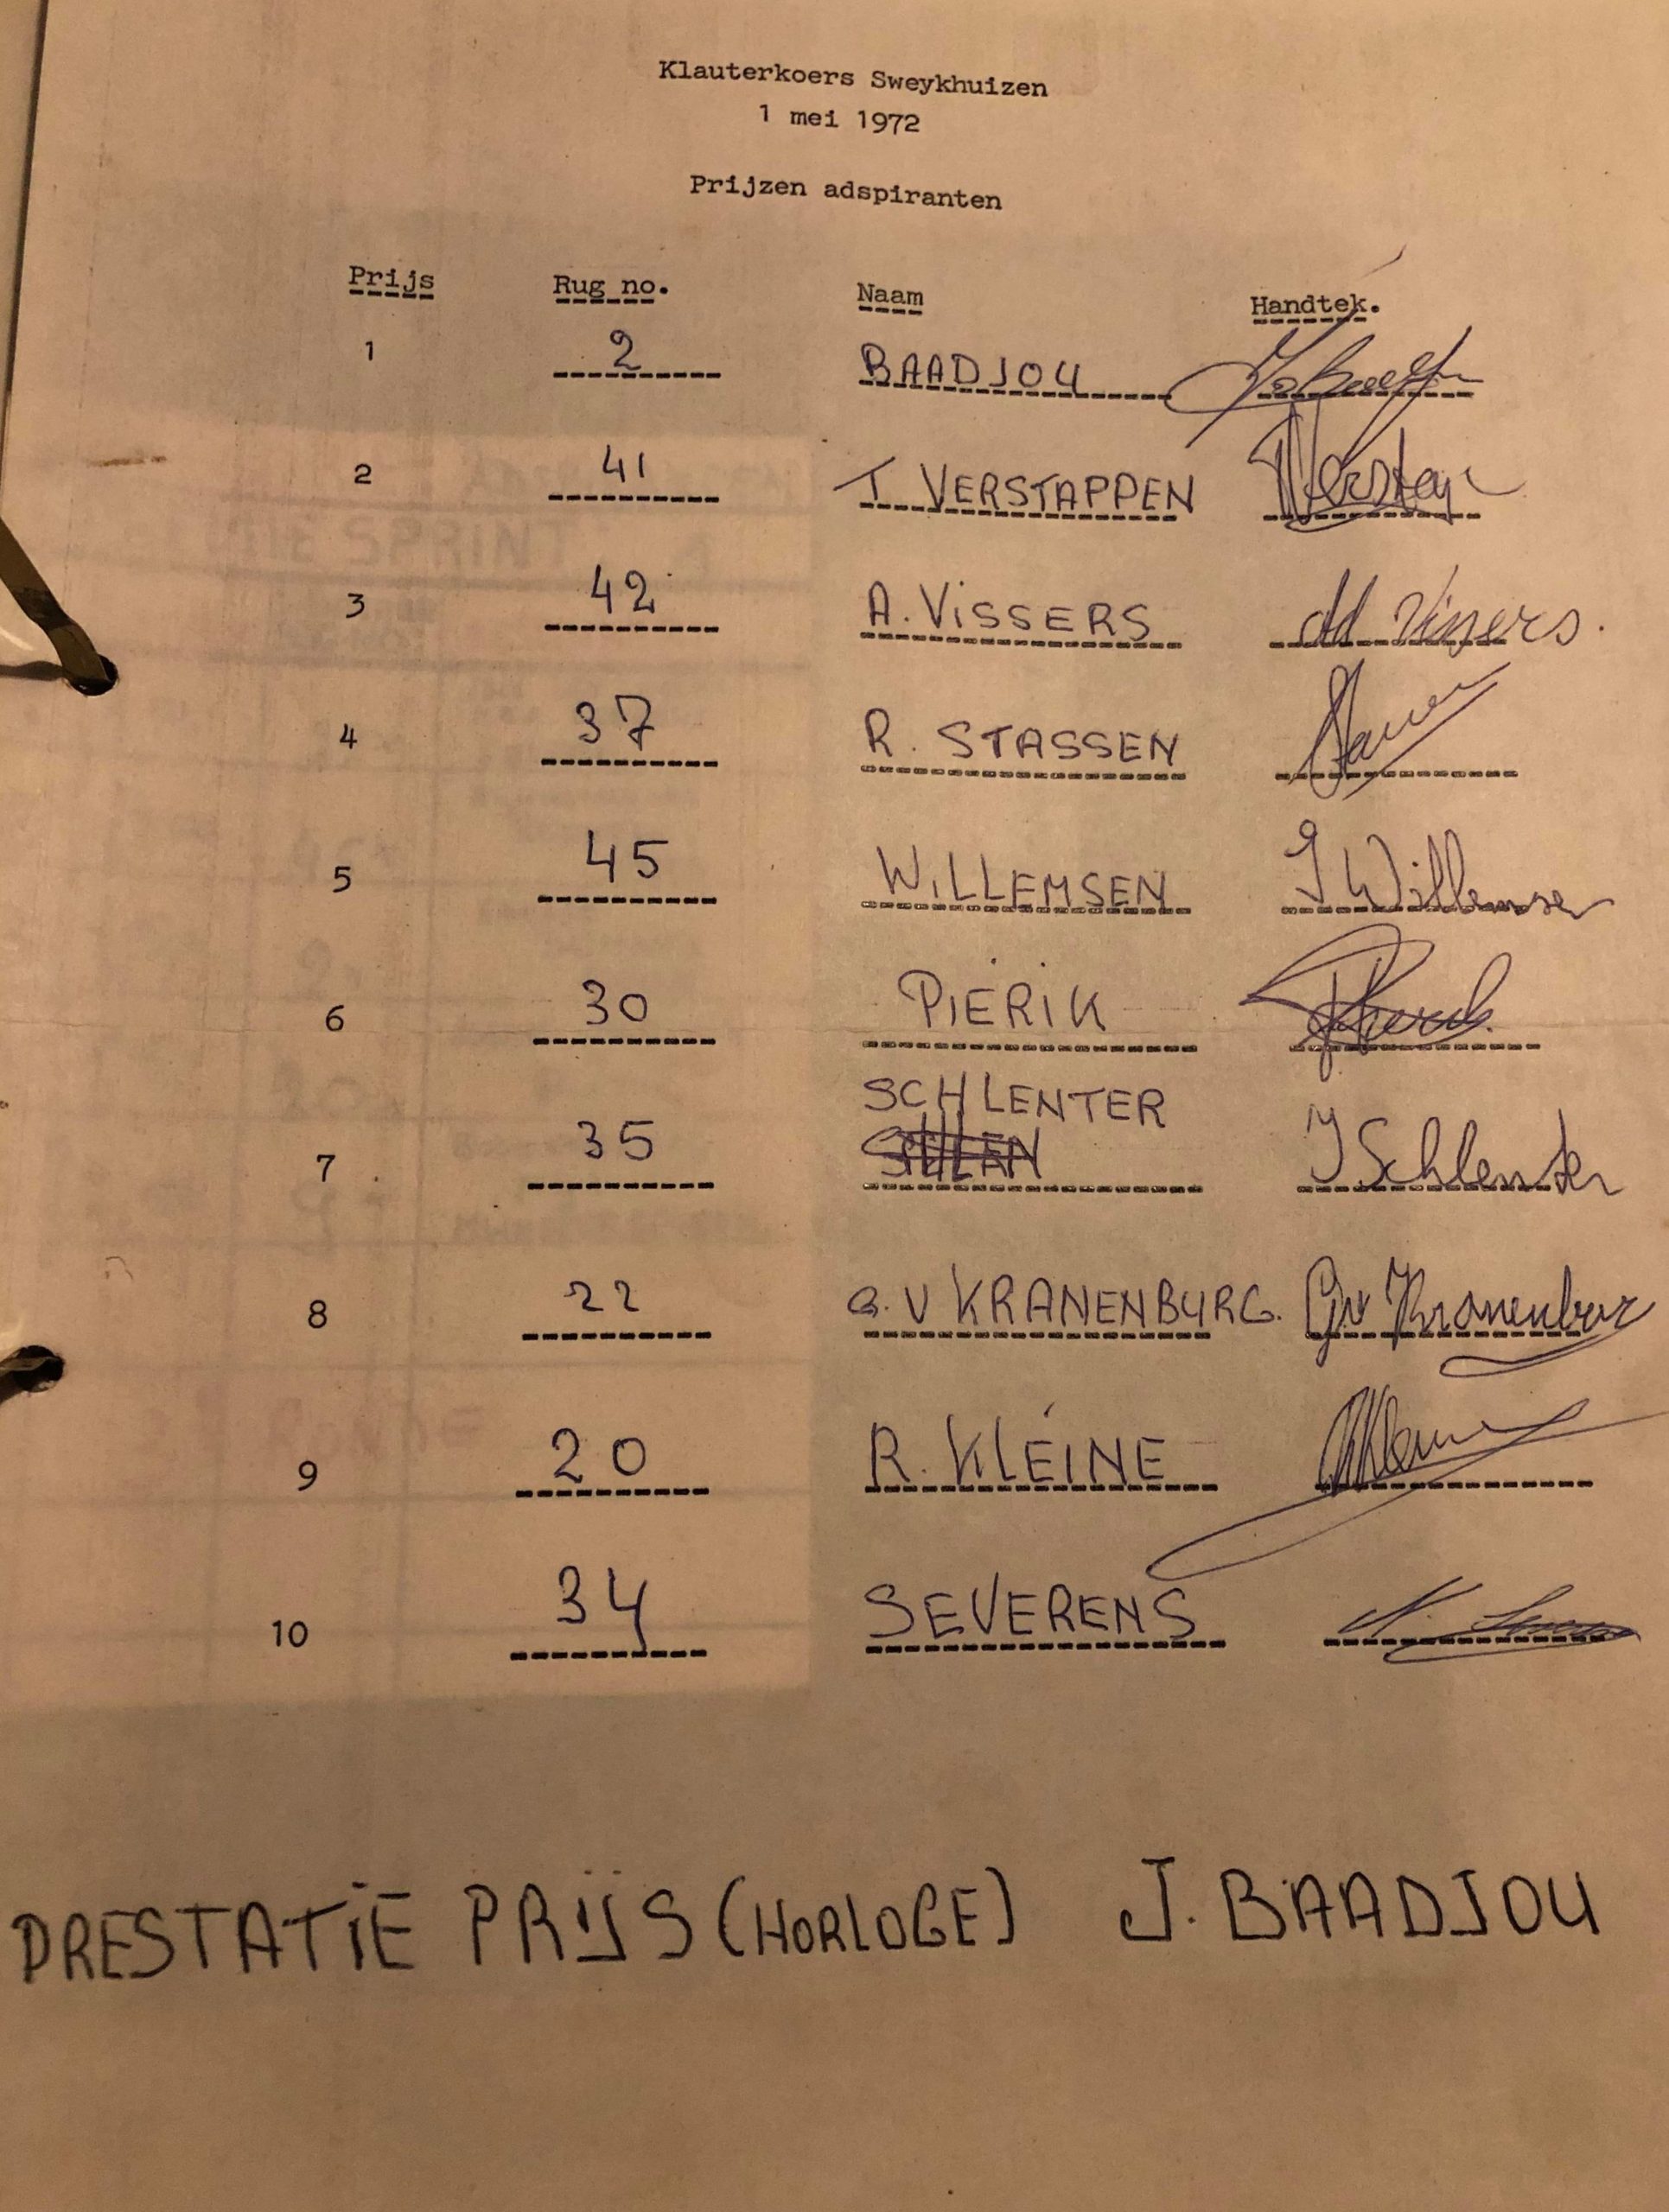 Klauterkoers Sweykhuizen
1 mei 1972
Prijzen adspiranten
Prijs Rug no. Naam Handtek.
1 2 BAADJOU
2 41 T VERSTAPPEN
3 42 A. VISSERS Ad Vissers.
4 37 R. STASSEN
5 45 WILLEMSEN J Willemsen
6 30 PIERIK
SCHLENTER
7 35 J Schlenter
8 22 G. V KRANENBURG. Gv Kranenburg
9 20 R. KLEINE
10 34 SEVERENS
PRESTATIE PRIJS (HORLOGE) J. BAADJOU